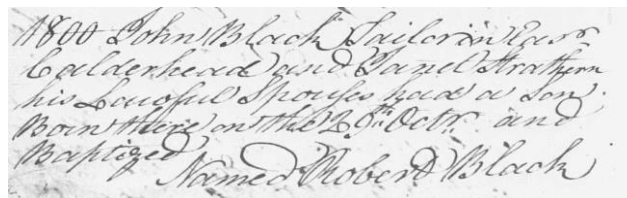 1800 John Black Tailor in East
Calderhead and Janet Strathern
his Lawful Spouse had a Son
Born there on the 25th Octr. and
Baptized
Named Robert Black